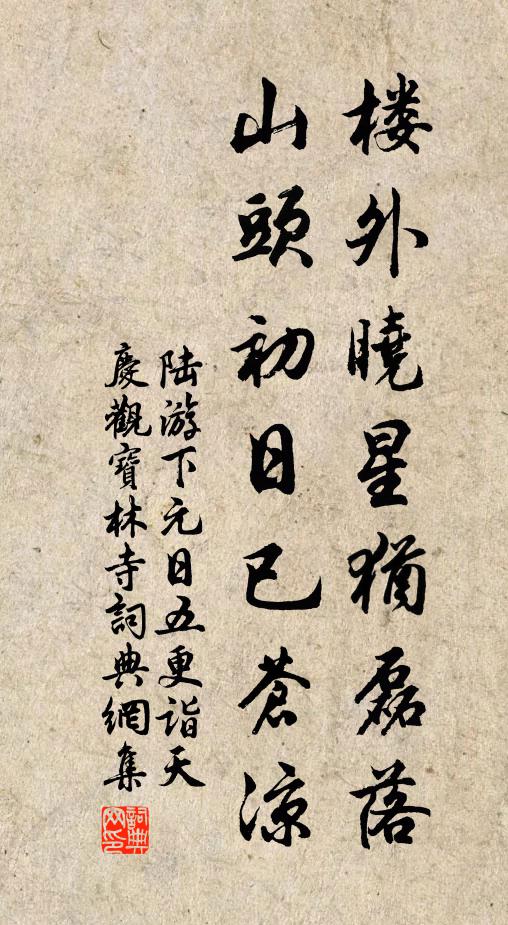 楼外曉星猶磊落
山頭初日已蒼涼
陆游下元日五更詣天
慶觀寶林寺詞典網集
詞典网印